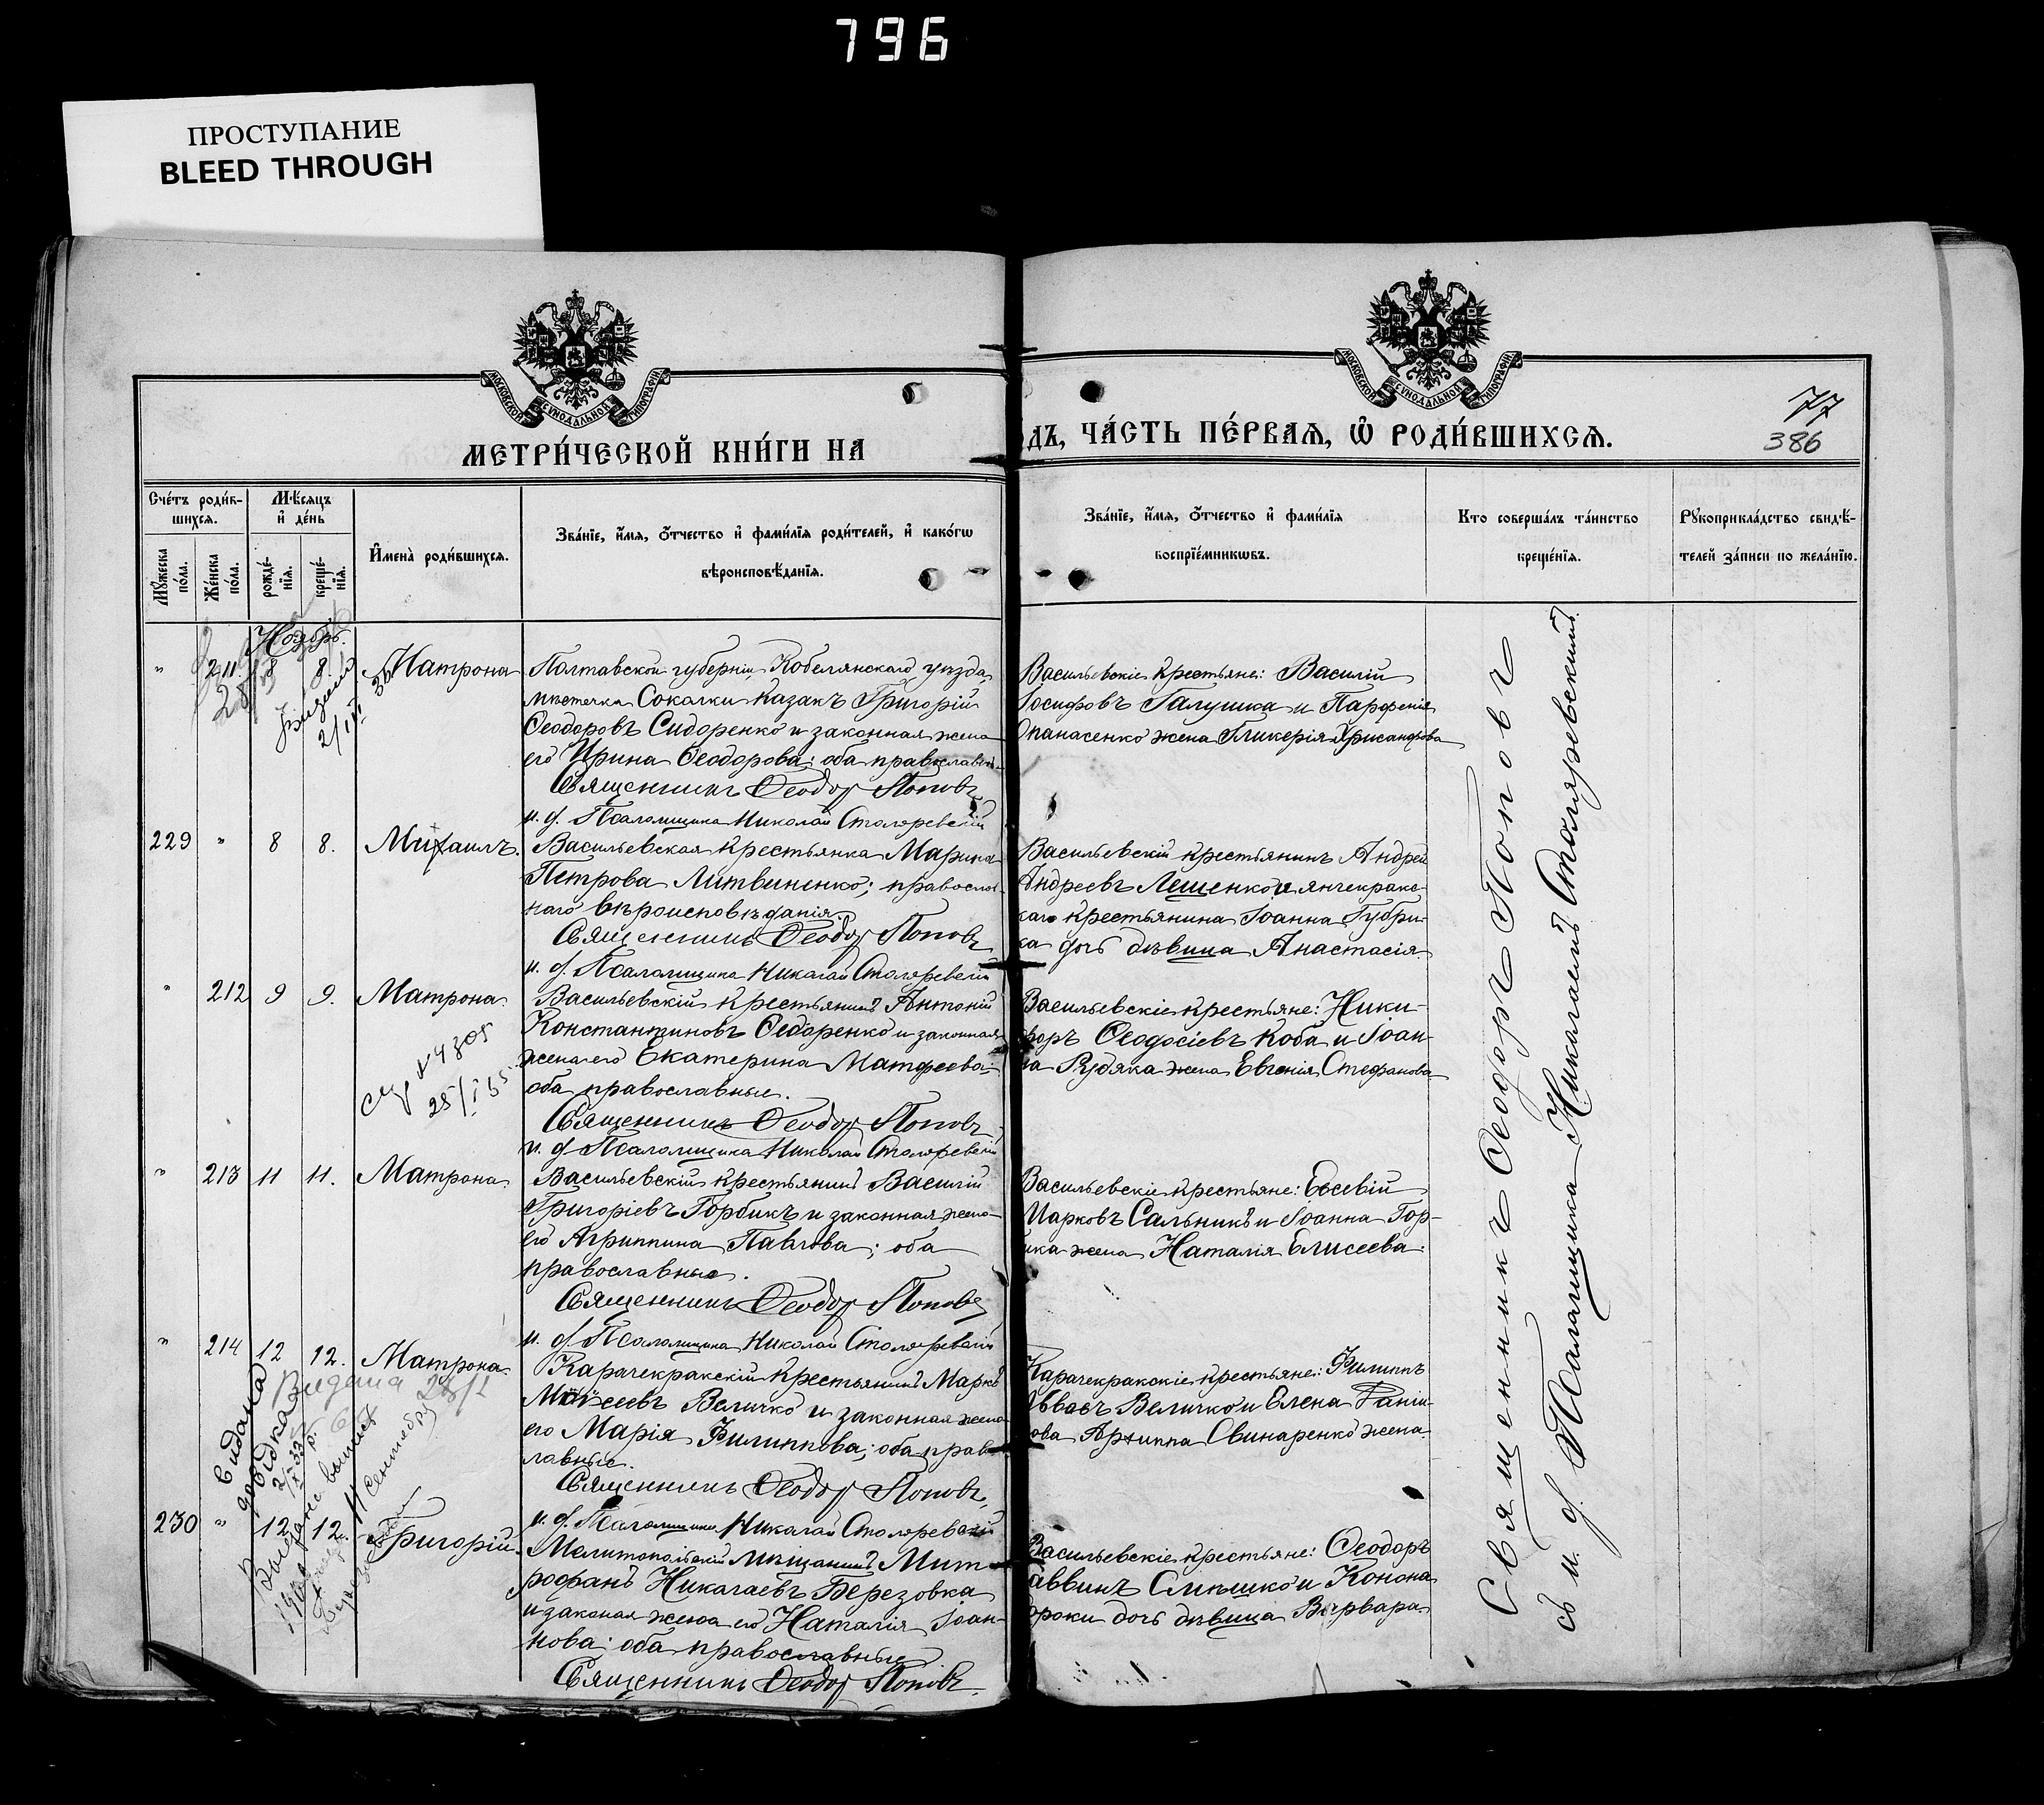 796
ПРОСТУПАНИЕ
BLEED THROUGH
МОСКОВСКОЙ СѴНОДАЛЬНОЙ ТИПОГРАФІИ
МОСКОВСКОЙ СѴНОДАЛЬНОЙ ТИПОГРАФІИ
77
386
МЕТРИ́ЧЕСКОЙ КНИ́ГИ НА
ДЪ, ЧА́СТЬ ПЕ́РВАЯ, Ѡ҆ РОДИ́ВШИХСЯ.
Сче́тъ роди́вшихся.
Мѣ́сяцъ и҆ де́нь
Му́жеска по́ла.
Же́нска по́ла.
рожде́нїѧ.
креще́нїѧ.
И҆мена̀ роди́вшихсѧ.
Зва́нїе, и҆́мѧ, ѻ҆́тчество и҆ фами́лїѧ роди́телей, и҆ како́гѡ
вѣроисповѣ́данїѧ.
Зва́нїе, и҆́мѧ, ѻ҆́тчество и҆ фами́лїѧ
воспрїе́мникѡвъ.
Кто соверша́лъ та́инство
креще́нїѧ.
Рꙋкоприкла́дство свидѣ́-
телей за́писи по жела́нїю.
Ноябрь.
" 211. 8 8. Матрона
Полтавской губерніи, Кобелянскаго уѣзда,
мѣстечка Соколки казакъ Григорій
Ѳеодоровъ Сидоренко и законная жена
его Ирина Ѳеодорова; оба православн
Священникъ Ѳеодоръ Поповъ
и. д. Псаломщика Николай Столяревскій
Васильевскіе крестьяне: Василій
Іосифовъ Галушка и Парфенія
Опанасенко жена Гликерія Хрисанфова
229 " 8 8. Михаилъ.
Васильевская крестьянка Марина
Петрова Литвиненко; православ-
наго вѣроисповѣданія.
Священникъ Ѳеодоръ Поповъ
и. д. Псаломщика Николай Столяревскій
Васильевскій крестьянинъ Андрей
Андреевъ Лещенко и янчекрак-
скаго крестьянина Іоанна Губри-
ка дочь дѣвица Анастасія.
" 212 9 9. Матрона
N 4305
25/I 55
Васильевскій крестьянинъ Антоній
Константиновъ Ѳедоренко и законная
жена его Екатерина Матфеева
оба православные.
Священникъ Ѳеодоръ Поповъ
и. д. Псаломщика Николай Столяревскій
Васильевскіе крестьяне: Ники-
форъ Ѳеодосіевъ Коба и Іоан-
на Рудяка жена Евгенія Стефанова
" 213 11 11. Матрона.
Васильевскій крестьянинъ Василій
Григоріевъ Горбикъ и законная жена
его Агриппина Павлова; оба
православные.
Священникъ Ѳеодоръ Поповъ
и. д. Псаломщика Николай Столяревскій
Васильевскіе крестьяне: Евсевій
Марковъ Сальникъ и Іоанна Гор-
бика жена Наталія Елисеева.
" 214 12 12. Матрона.
Карачекракскій крестьянинъ Маркъ
Моисеевъ Величко и законная жена
его Марія Филиппова; оба право
лавные.
Священникъ Ѳеодоръ Поповъ
и. д. Псаломщика Николай Столяревскій
Карачекракскіе крестьяне: Филиппъ
Величко и Елена Даніи-
лова Архиппа Свинаренко жена.
230 " 12 12. Григорій.
Мелитопольскій мѣщанинъ Мит-
рофанъ Николаевъ Березовка
и законая жена его Наталія Іоан-
нова; оба православные
Священникъ Ѳеодоръ Поповъ
Васильевскіе крестьяне: Ѳеодоръ
Саввинъ Слѣпшко и Конона
дочь дѣвица Варвара.
Священникъ Ѳеодоръ Поповъ
съ и. д. Псаломщика Николаемъ Столяревскимъ